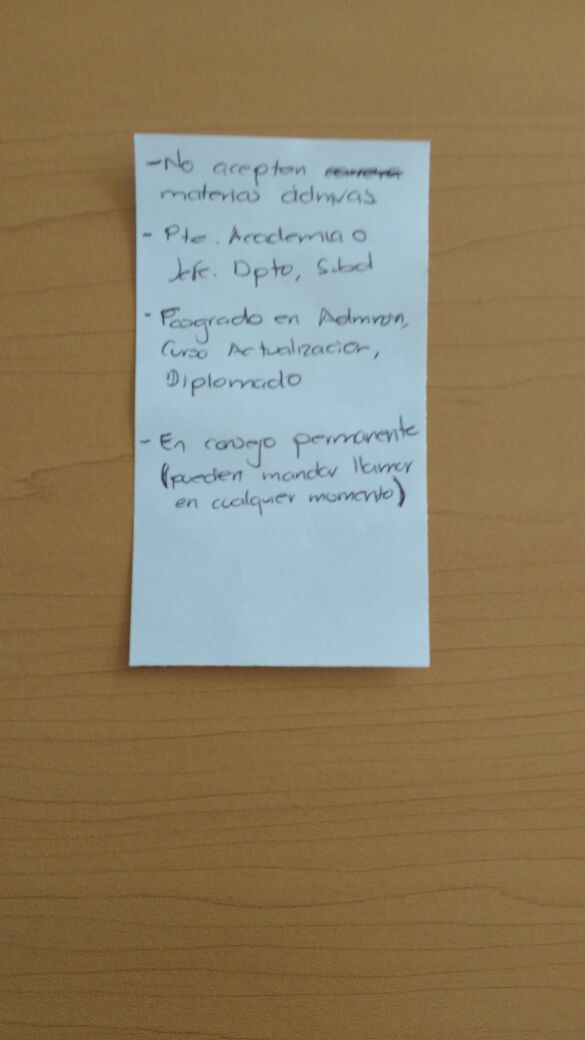 - No acepten carrera
materias admvas
- Pte. Academia o
Jefe. Dpto, Subd
- Posgrado en Admron,
Curso Actualización,
Diplomado
- En consejo permanente
(pueden mandar llamar
en cualquier momento)